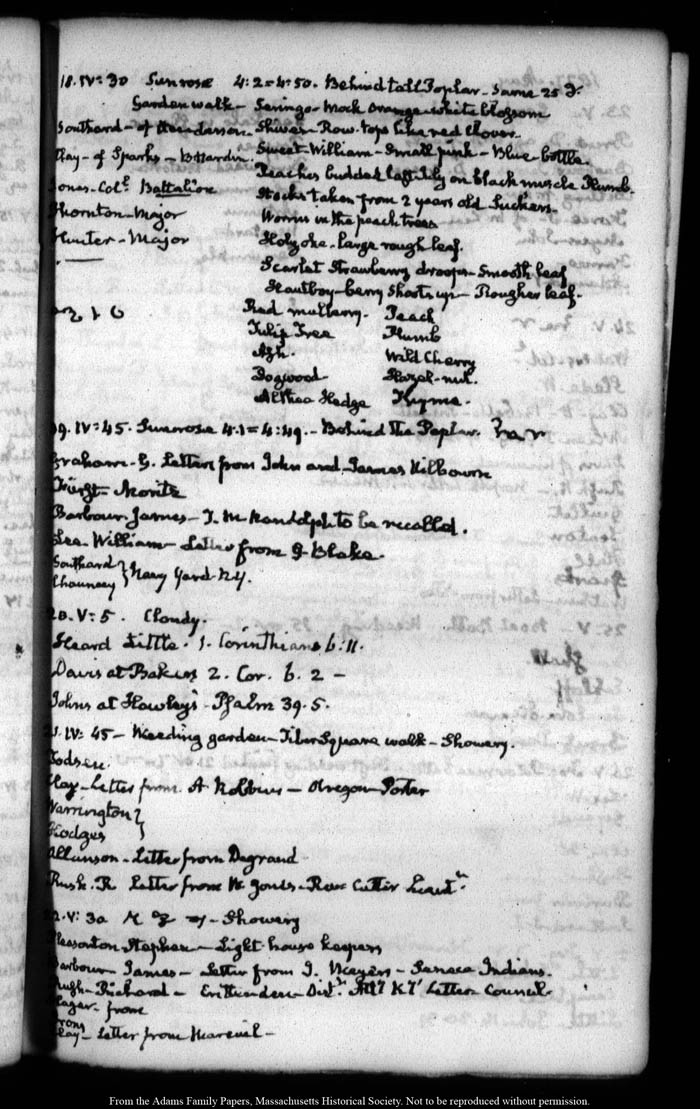 18. IV:30 Sunrose 4:2=4:50. Behind tall Poplar - Same 25 F.
Garden walk - Seringo - Mock Orange - white blossom
Southard - of Henderson. Shives - Row. tops like red Clover.
Clay - of Sparks - B Hardin. Sweet-William - Small pink - Blue bottle.
Jones - Col.l Battalion Peaches budded last July on black muscle Plumb.
Thornton - Major Stocks taken from 2 years old Suckers.
Hunter - Major Worms in the peach trees
Holyoke - large rough leaf.
Scarlet Strawberry droops - Smooth leaf
Hautboy - berry Shoots up - Rougher leaf.
Red mulberry. Peach
Tulip Tree Plumb
Ash. Wild Cherry
Dogwood Hazel-nut.
Althea Hedge
19. IV:45. Sunrose 4.1=4:49. - Behind the Poplar.
Graham. G. Letter from John and James Kilbourn
Furst - Moritz
Barbour James - T. M. Randolph to be recalled.
Lee - William - Letter from G. Blake.
Southard } Navy Yard N.Y.
Chauncey
20. V:5. Cloudy.
Heard Little. 1. Corinthians 6:11.
Davis at Bakers 2. Cor. 6. 2 -
Johns at Hawley's - Psalm 39. 5.
21. IV:45 - Weeding garden - Tiber Square walk - Showery.
Clay - Letter from A Robbins - Oregon - Porter
Warrington }
Hodges
Allinson - Letter from Degrand -
Rush. R Letter from W. Jones - Rev. Cutter Lieut.t
22. V:30 - Showery
Pleasonton Stephen - Light house keepers
Barbour - James - Letter from J. - Seneca Indians.
Rush - Richard - Crittenden - Dist.t Att'y K'y Letter Council
from
Clay - Letter from Mareuil -
From the Adams Family Papers, Massachusetts Historical Society. Not to be reproduced without permission.